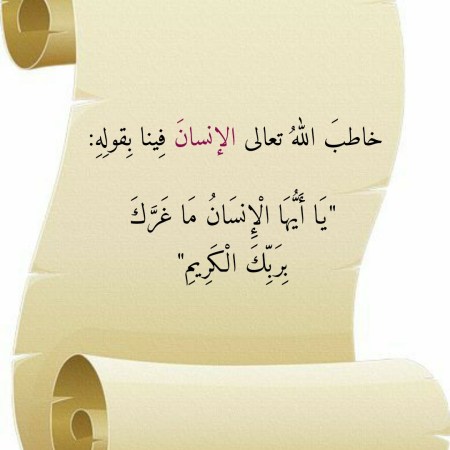 خاطبَ اللهُ تعالى الإنسانَ فِينا بِقولِهِ:
"يَا أَيُّهَا الْإِنسَانُ مَا غَرَّكَ
بِرَبِّكَ الْكَرِيمِ"